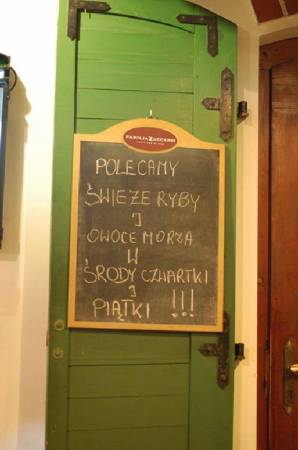 POLECAMY
ŚWIEŻE RYBY
I
OWOCE MORZA
W
ŚRODY CZWARTKI
I
PIĄTKI !!!